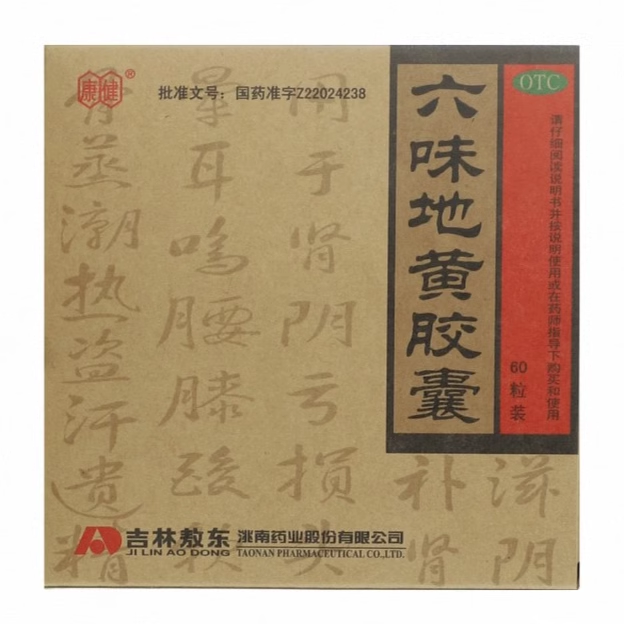 康健®
批准文号：国药准字Z22024238
六味地黄胶囊
OTC
请仔细阅读说明书并按说明使用或在药师指导下购买和使用
60粒装
滋阴
补肾
用于肾阴亏损头
晕耳鸣腰膝酸软
骨蒸潮热盗汗遗精
吉林敖东 洮南药业股份有限公司
JI LIN AO DONG TAONAN PHARMACEUTICAL CO.,LTD.